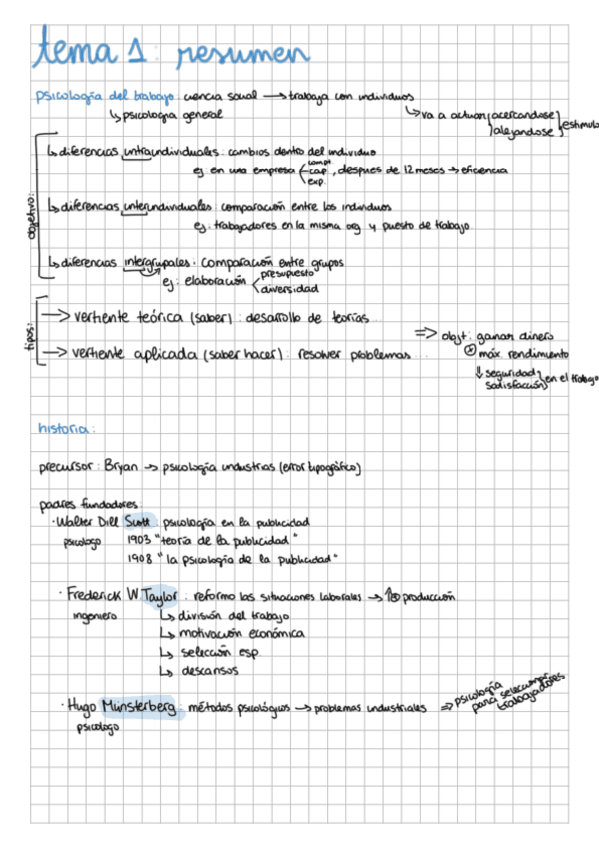 tema 1: resumen
psicología del trabajo: ciencia social → trabaja con individuos
↳ psicologia general
↳ va a actuar {acercandose / alejandose} estimulo
objetivo:
↳ diferencias intraindividuales: cambios dentro del individuo
ej en una empresa compt. cap. exp. , despues de 12 meses → eficiencia
↳ diferencias interindividuales: comparación entre los individuos
ej: trabajadores en la misma org y puesto de trabajo
↳ diferencias intergrupales: comparación entre grupos
ej: elaboración < presupuesto
diversidad
tipos:
→ vertiente teórica (saber): desarrollo de teorías...
→ vertiente aplicada (saber hacer): resolver problemas...
⇒ objt: ganar dinero
máx. rendimiento
↓ seguridad
satisfacción } en el trabajo
historia:
precursor: Bryan → psicología industrias (error tipográfico)
padres fundadores:
· Walter Dill Scott: psicología en la publicidad
psicologo 1903 "teoría de la publicidad"
1908 "la psicología de la publicidad"
· Frederick W. Taylor: reformo las situaciones laborales → ↑ producción
ingeniero ↳ división del trabajo
↳ motivación económica
↳ selección esp.
↳ descansos
· Hugo Munsterberg: métodos psicológios → problemas industriales ⇒ psicología para seleccionar trabajadores
psicologo